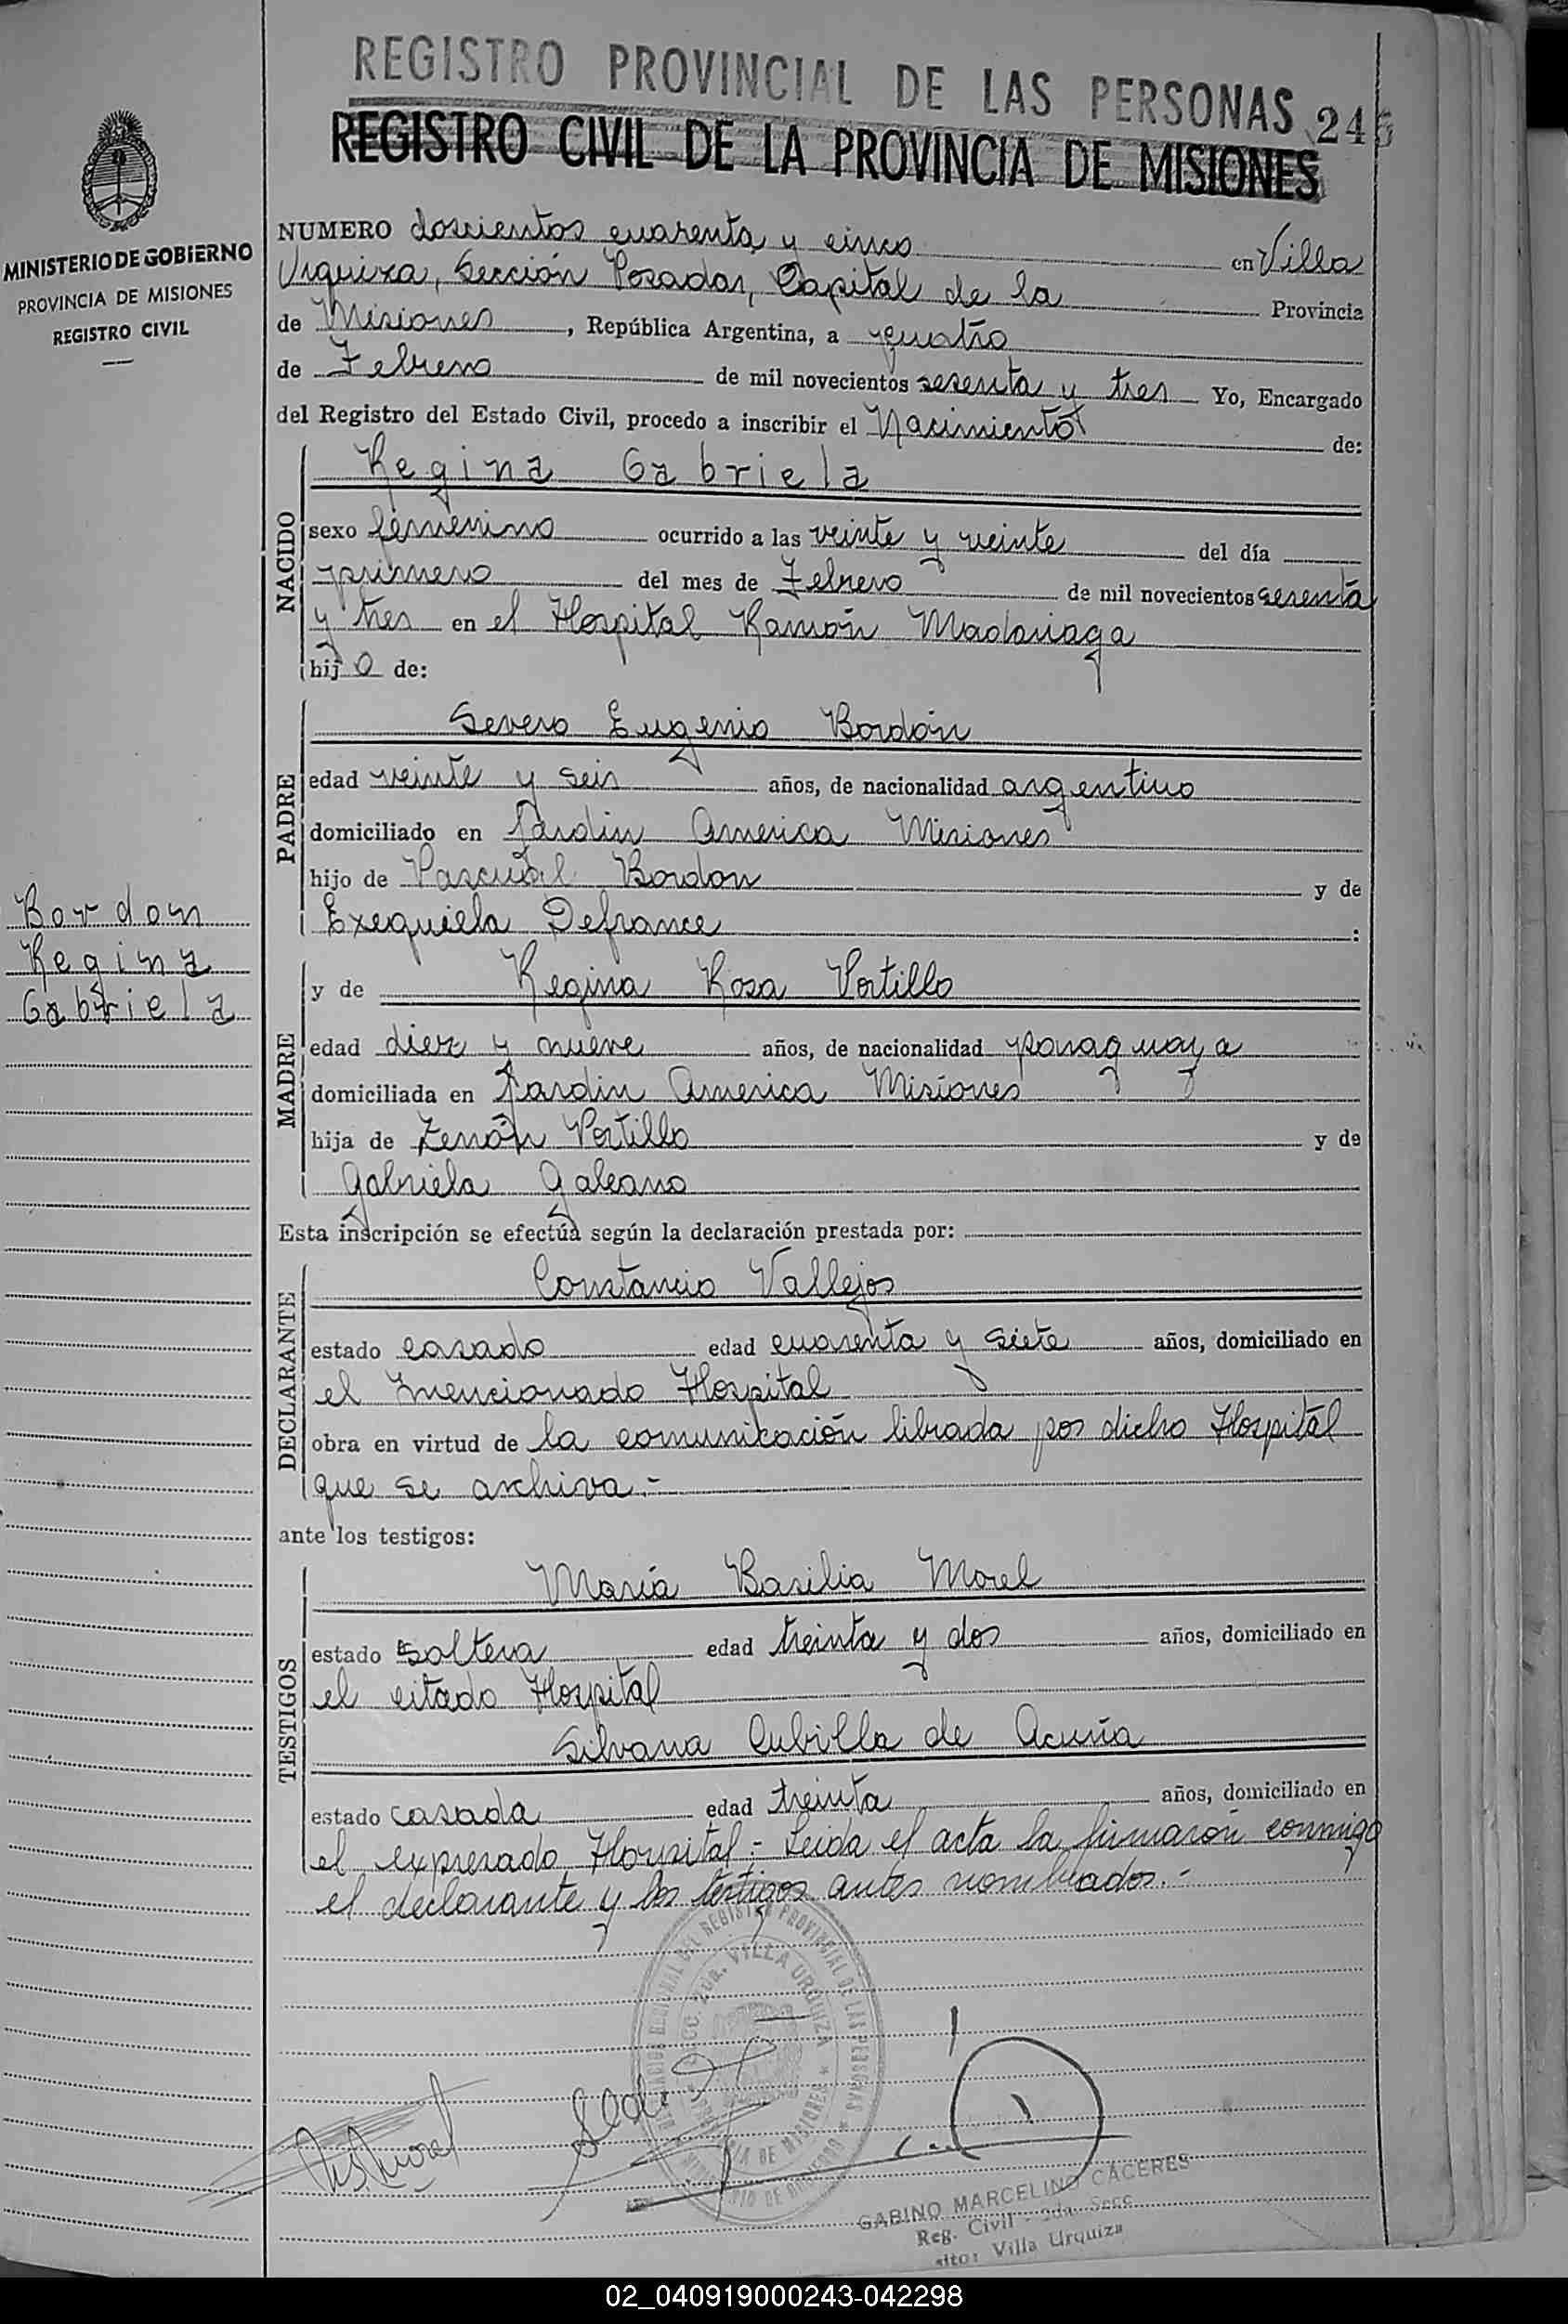 REGISTRO PROVINCIAL DE LAS PERSONAS
245
REGISTRO CIVIL DE LA PROVINCIA DE MISIONES
MINISTERIO DE GOBIERNO
PROVINCIA DE MISIONES
REGISTRO CIVIL
NUMERO doscientos cuarenta y cinco en Villa
Urquiza, Sección Posadas, Capital de la Provincia
de Misiones, República Argentina, a cuatro
de Febrero de mil novecientos sesenta y tres Yo, Encargado
del Registro del Estado Civil, procedo a inscribir el Nacimiento de:
NACIDO
Regina Gabriela
sexo femenino ocurrido a las veinte y veinte del día
primero del mes de Febrero de mil novecientos sesenta
y tres en el Hospital Ramón Madariaga
hij a de:
PADRE
Severo Eugenio Bordón
edad veinte y seis años, de nacionalidad argentino
domiciliado en Jardin America Misiones
hijo de Pascual Bordon y de
Exequiela Defrance :
Bordon
Regina
Gabriela
MADRE
y de Regina Rosa Portillo
edad diez y nueve años, de nacionalidad paraguaya
domiciliada en Jardin America Misiones
hija de Zenón Portillo y de
Gabriela Galeano
Esta inscripción se efectúa según la declaración prestada por:
DECLARANTE
Constancio Vallejos
estado casado edad cuarenta y siete años, domiciliado en
el mencionado Hospital
obra en virtud de la comunicación librada por dicho Hospital
que se archiva.-
ante los testigos:
TESTIGOS
María Basilia Morel
estado soltera edad treinta y dos años, domiciliado en
el citado Hospital
Silvana Cubilla de Acuña
estado casada edad treinta años, domiciliado en
el expresado Hospital.- Leida el acta la firmaron conmigo
el declarante y los testigos antes nombrados.-
GABINO MARCELINO CACERES
Reg. Civil 2da. Secc.
Villa Urquiza
02_040919000243-042298